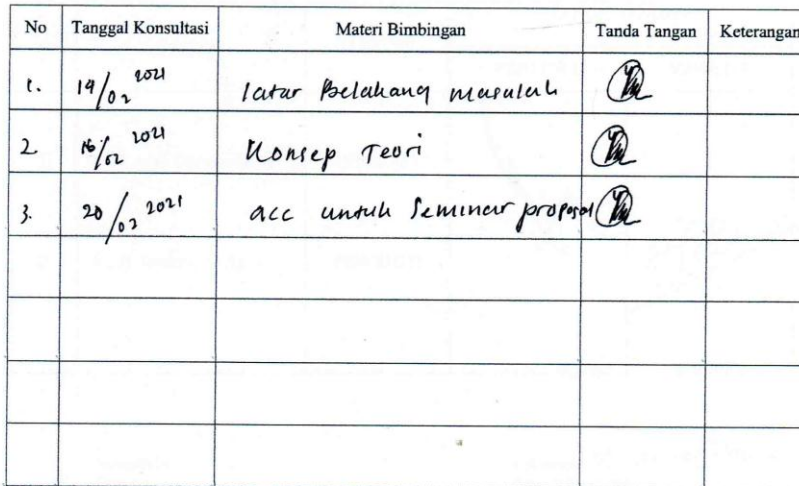 No Tanggal Konsultasi Materi Bimbingan Tanda Tangan Keterangan
1. 19/02 2021 latar Belakang masalah
2 16/02 2021 Konsep Teori
3. 20/02 2021 acc untuk Seminar proposal